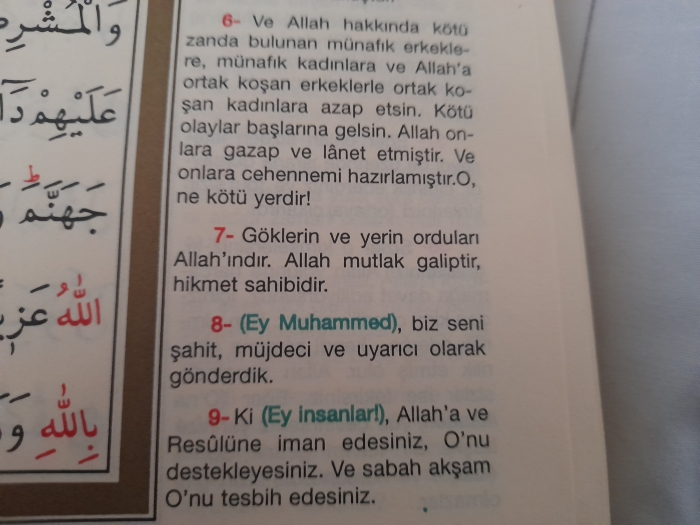 وَالْمُشْرِ
عَلَيْهِمْ
جَهَنَّمَ
اللّٰهُ
بِاللّٰهِ
6- Ve Allah hakkında kötü
zanda bulunan münafık erkekle-
re, münafık kadınlara ve Allah'a
ortak koşan erkeklerle ortak ko-
şan kadınlara azap etsin. Kötü
olaylar başlarına gelsin. Allah on-
lara gazap ve lânet etmiştir. Ve
onlara cehennemi hazırlamıştır.O,
ne kötü yerdir!
7- Göklerin ve yerin orduları
Allah'ındır. Allah mutlak galiptir,
hikmet sahibidir.
8- (Ey Muhammed), biz seni
şahit, müjdeci ve uyarıcı olarak
gönderdik.
9- Ki (Ey insanlar!), Allah'a ve
Resûlüne iman edesiniz, O'nu
destekleyesiniz. Ve sabah akşam
O'nu tesbih edesiniz.